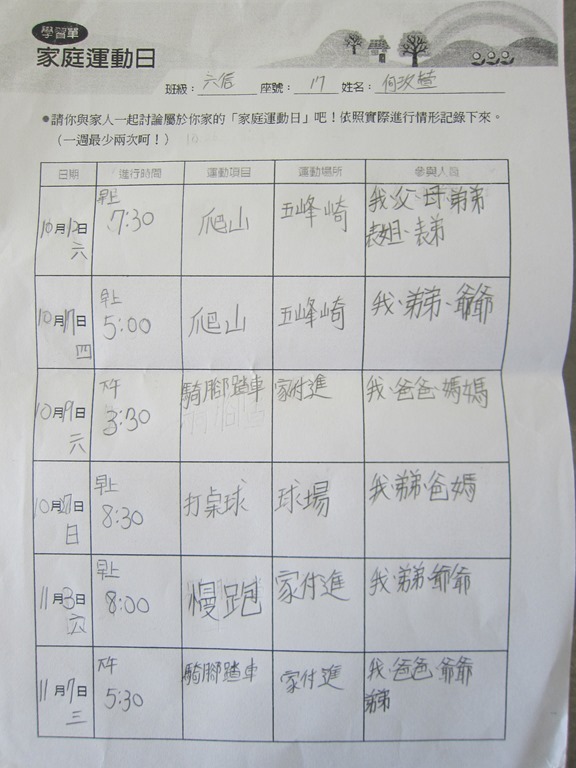 學習單
家庭運動日
班級：六信 座號：17 姓名：何玫萱
●請你與家人一起討論屬於你家的「家庭運動日」吧！依照實際進行情形記錄下來。
（一週最少兩次呵！）
日期 進行時間 運動項目 運動場所 參與人員
10月12日 六 早上 7:30 爬山 五峰崎 我、父、母、弟弟、表姐、表弟
10月17日 四 早上 5:00 爬山 五峰崎 我、弟弟、爺爺
10月9日 六 下午 3:30 騎腳踏車 家付進 我、爸爸、媽媽
10月27日 日 早上 8:30 打桌球 球場 我、弟弟、爸媽
11月3日 六 早上 8:00 慢跑 家付進 我、弟弟、爺爺
11月7日 三 下午 5:30 騎腳踏車 家付進 我、爸爸、爺爺 弟弟